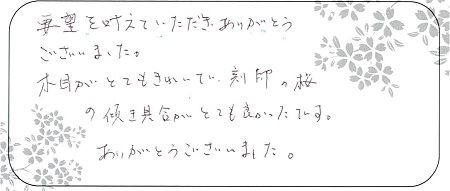 要望を叶えていただきありがとう
ございました。
木目がとてもきれいで、刻師の桜
の傾き具合がとても良かったです。
ありがとうございました。